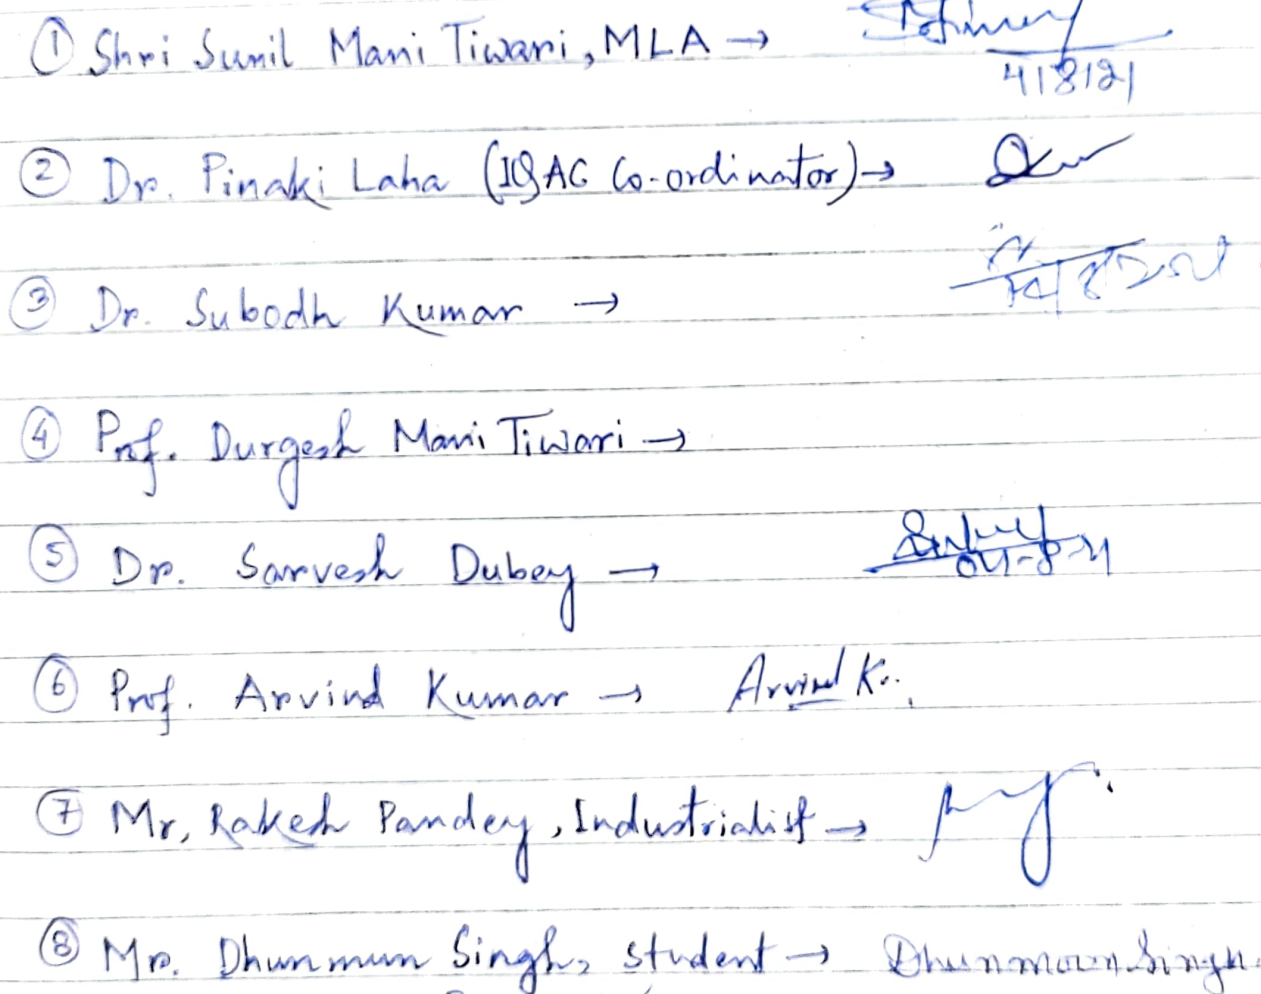 ① Shri Sunil Mani Tiwari, MLA →
4/8/21
② Dr. Pinaki Laha (IQAC Co-ordinator) →
③ Dr. Subodh Kumar →
④ Prof. Durgesh Mani Tiwari →
⑤ Dr. Sarvesh Dubey →
04-8-21
⑥ Prof. Arvind Kumar → Arvind Kr.
⑦ Mr, Rakesh Pandey, Industrialist →
⑧ Mr. Dhunmun Singh, student → Dhunmoon Singh.